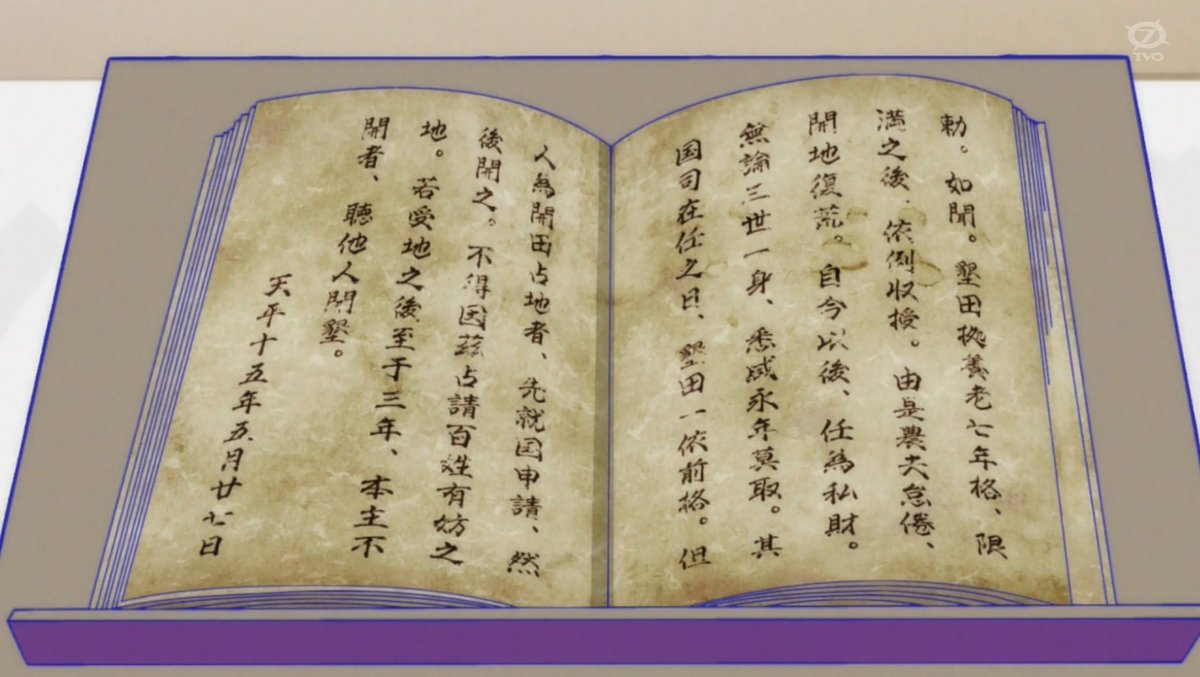 勅。如聞。墾田拠養老七年格、限
満之後、依例収授。由是農夫怠倦、
開地復荒。自今以後、任為私財。
無論三世一身、悉咸永年莫取。其
国司在任之日、墾田一依前格。但
人為開田占地者、先就国申請、然
後開之。不得因茲占請百姓有妨之
地。若受地之後至于三年、本主不
開者、聴他人開墾。
天平十五年五月廿七日
7
TVO